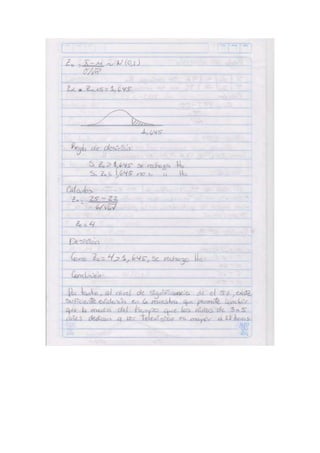 Zc = x̄ - μ ~ N(0,1)
σ/√n
Zα = Z0.05 = 1,645
1,645
Regla de decisión
Si Zc > 1,645 se rechaza Ho
Si Zc ≤ 1,645 no " " Ho
Cálculos
Zc =
Zc = 4
Decisión
Como Zc = 4 > 1,645, se rechaza Ho
Conclusión
Por tanto, al nivel de significancia de el 5%, existe
suficiente evidencia en la muestra que permite concluir
que la media del tiempo que los niños de 3 a 5
años dedican a ver Televisión es mayor a 22 horas